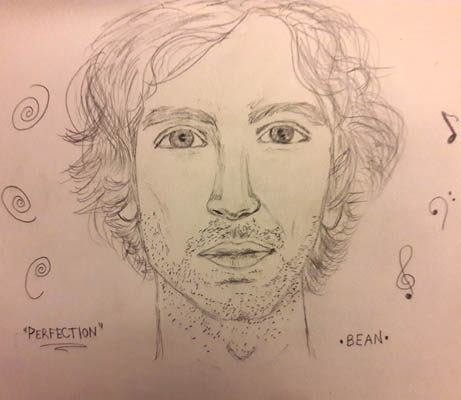 "PERFECTION"
•BEAN•